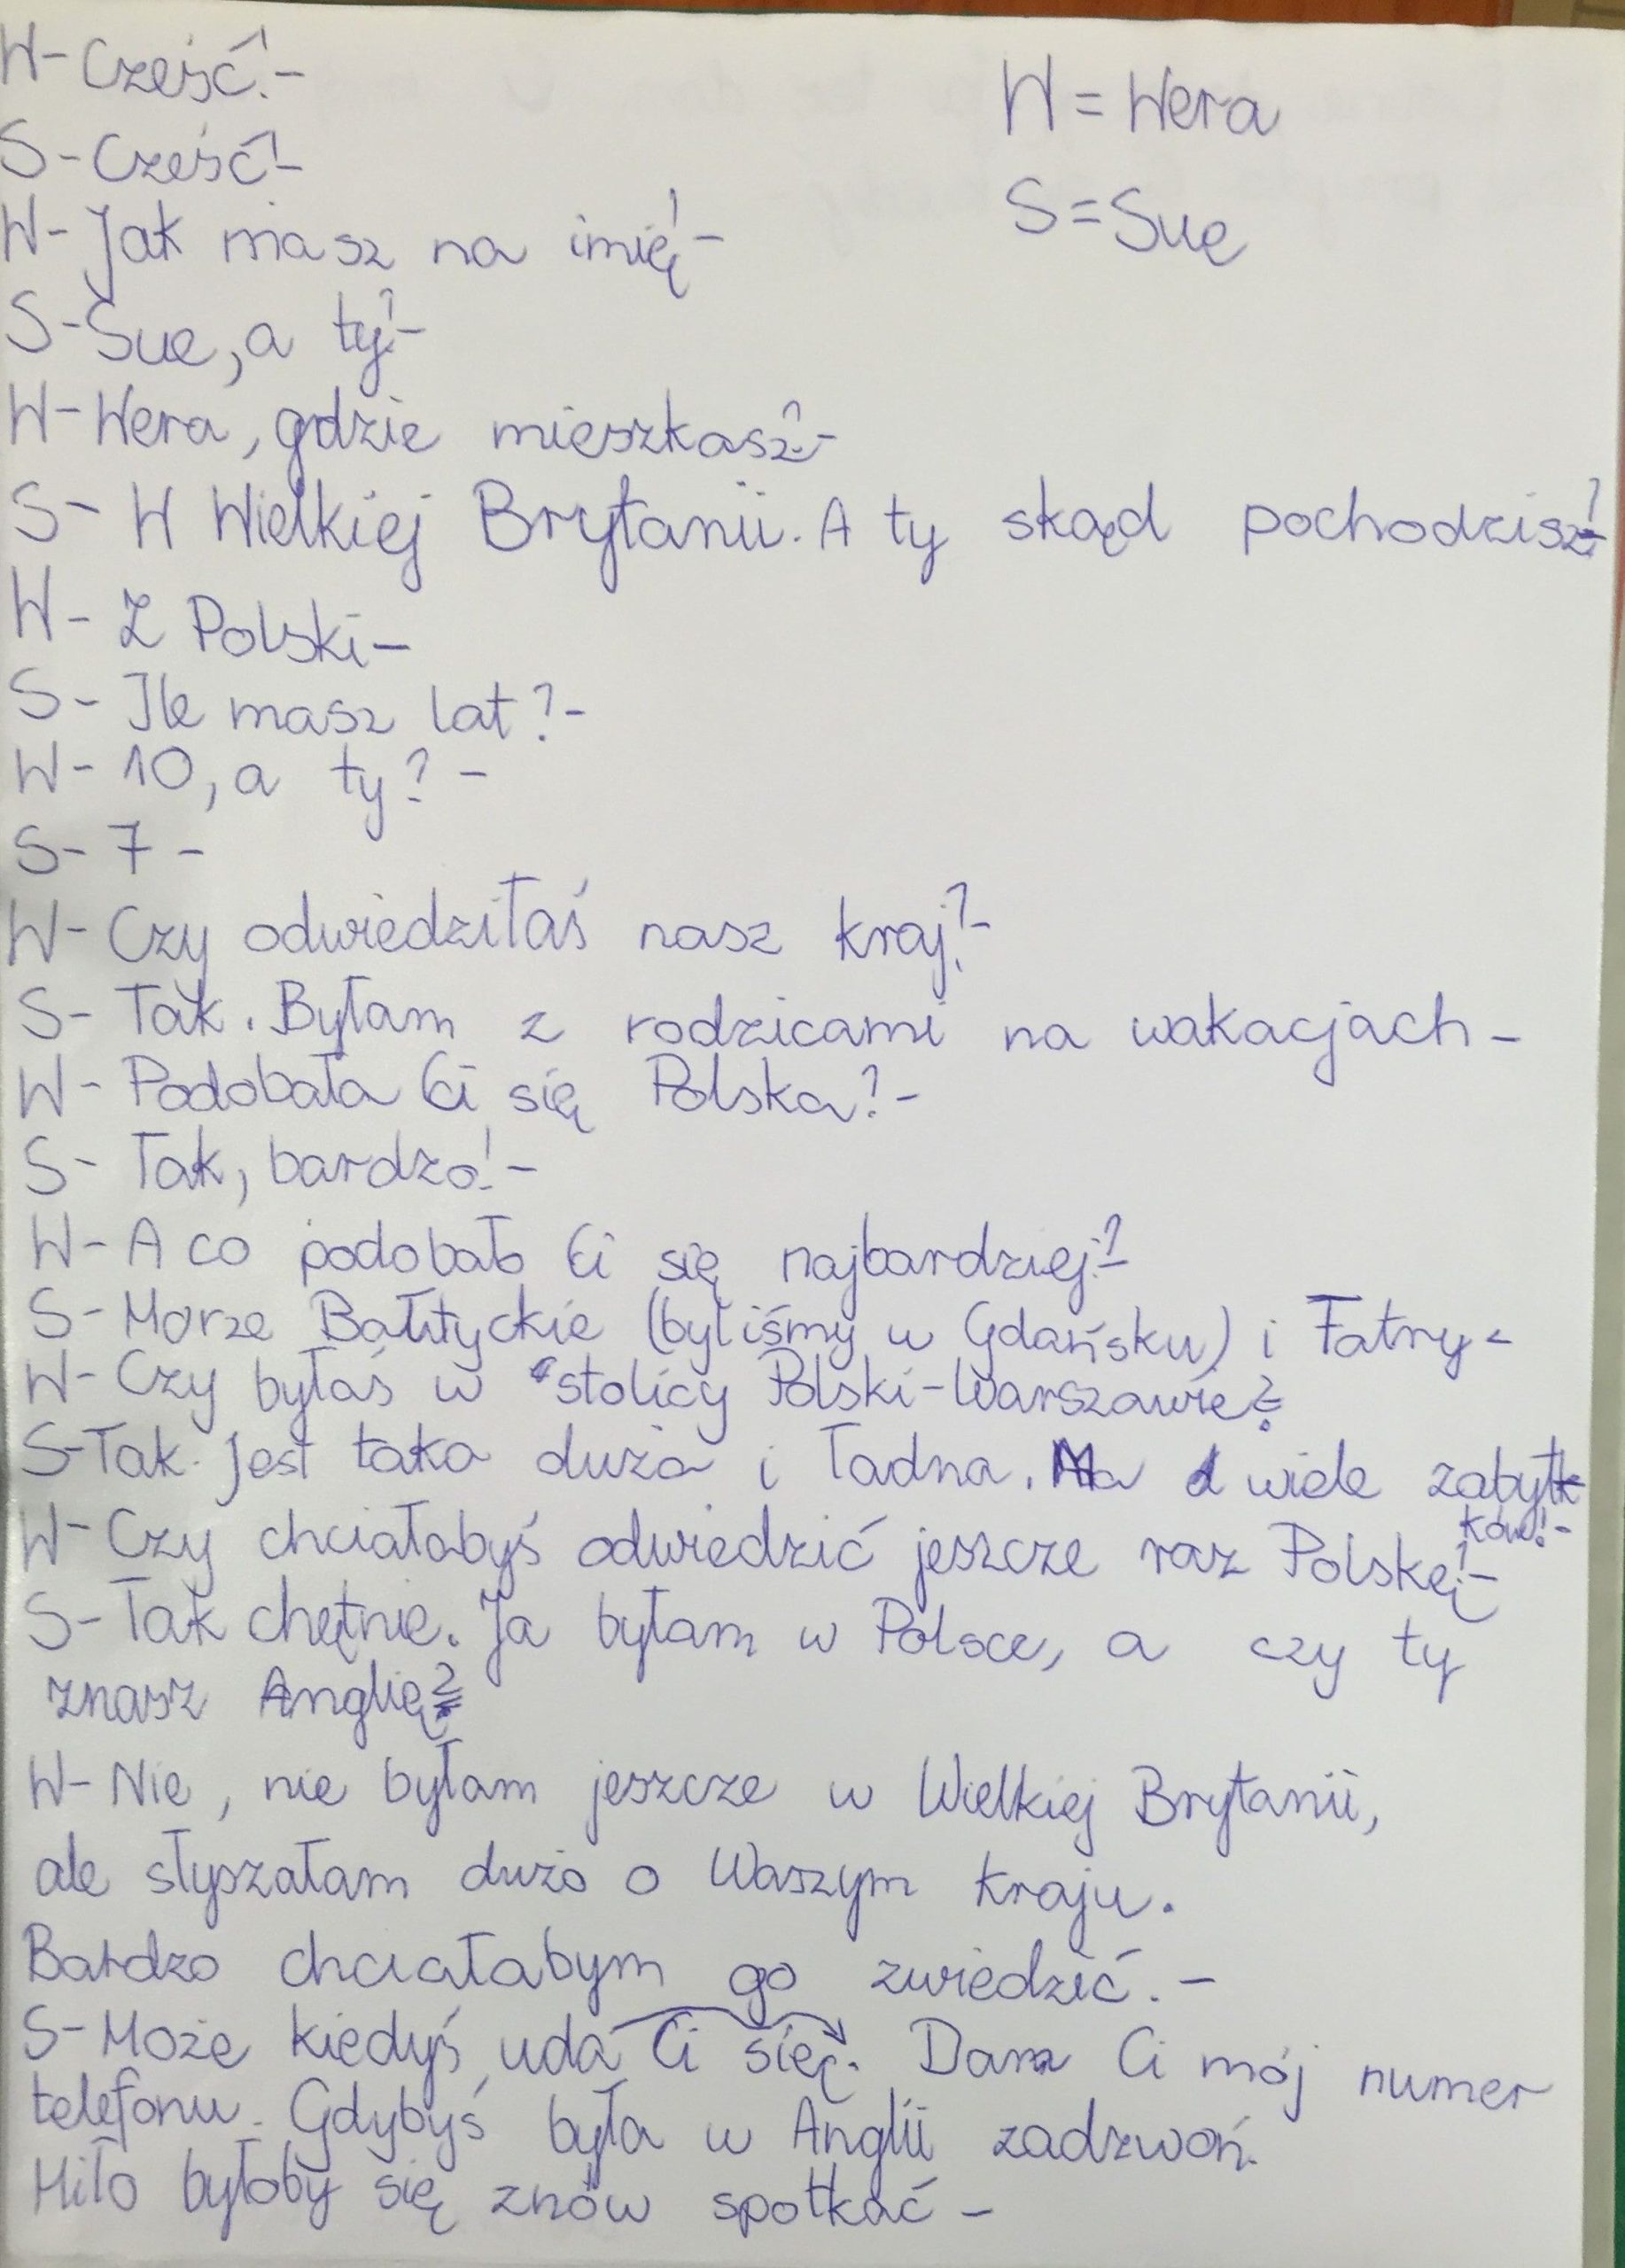 W-Cześć!-
W=Wera
S-Cześć!-
S=Sue
W-Jak masz na imię!-
S-Sue, a ty?-
W-Wera, gdzie mieszkasz?-
S- W Wielkiej Brytanii. A ty skąd pochodzisz?-
W- Z Polski-
S- Ile masz lat?-
W- 10, a ty?-
S- 7 -
W- Czy odwiedziłaś nasz kraj?-
S- Tak. Byłam z rodzicami na wakacjach-
W- Podobała Ci się Polska?-
S- Tak, bardzo!-
W- A co podobało Ci się najbardziej?-
S- Morze Bałtyckie (byliśmy w Gdańsku) i Tatry-
W- Czy byłaś w stolicy Polski-Warszawie?
S-Tak. Jest taka duża i ładna. Ma wiele zabyt-
ków!-
W-Czy chciałabyś odwiedzić jeszcze raz Polskę?-
S-Tak chętnie. Ja byłam w Polsce, a czy ty
znasz Anglię?
W-Nie, nie byłam jeszcze w Wielkiej Brytanii,
ale słyszałam dużo o Waszym kraju.
Bardzo chciałabym go zwiedzić.-
S-Może kiedyś uda Ci się. Dam Ci mój numer
telefonu. Gdybyś była w Anglii zadzwoń.
Miło byłoby się znów spotkać-